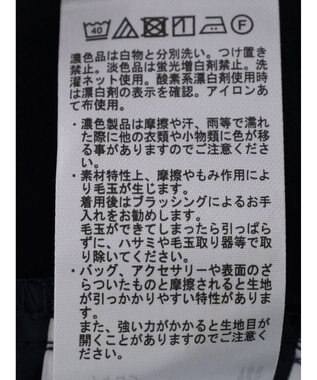 40 F
濃色品は白物と分別洗い。つけ置き
禁止。淡色品は蛍光増白剤禁止。洗
濯ネット使用。酸素系漂白剤使用時
は漂白剤の表示を確認。アイロンあ
て布使用。
・濃色製品は摩擦や汗、雨等で濡れ
た際に他の衣類や小物類に色が移
る事がありますのでご注意くださ
い。
・素材特性上、摩擦やもみ作用によ
り毛玉が生じます。
着用後はブラッシングによるお手
入れをお勧めします。
毛玉ができてしまったら引っぱら
ずに、ハサミや毛玉取り器等で取
り除いてください。
・バッグ、アクセサリーや表面のざ
らついたものと摩擦されると生地
が引っかかりやすい特性がありま
す。
また、強い力がかかると生地目が
開くことがありますのでご注意く
ださい。